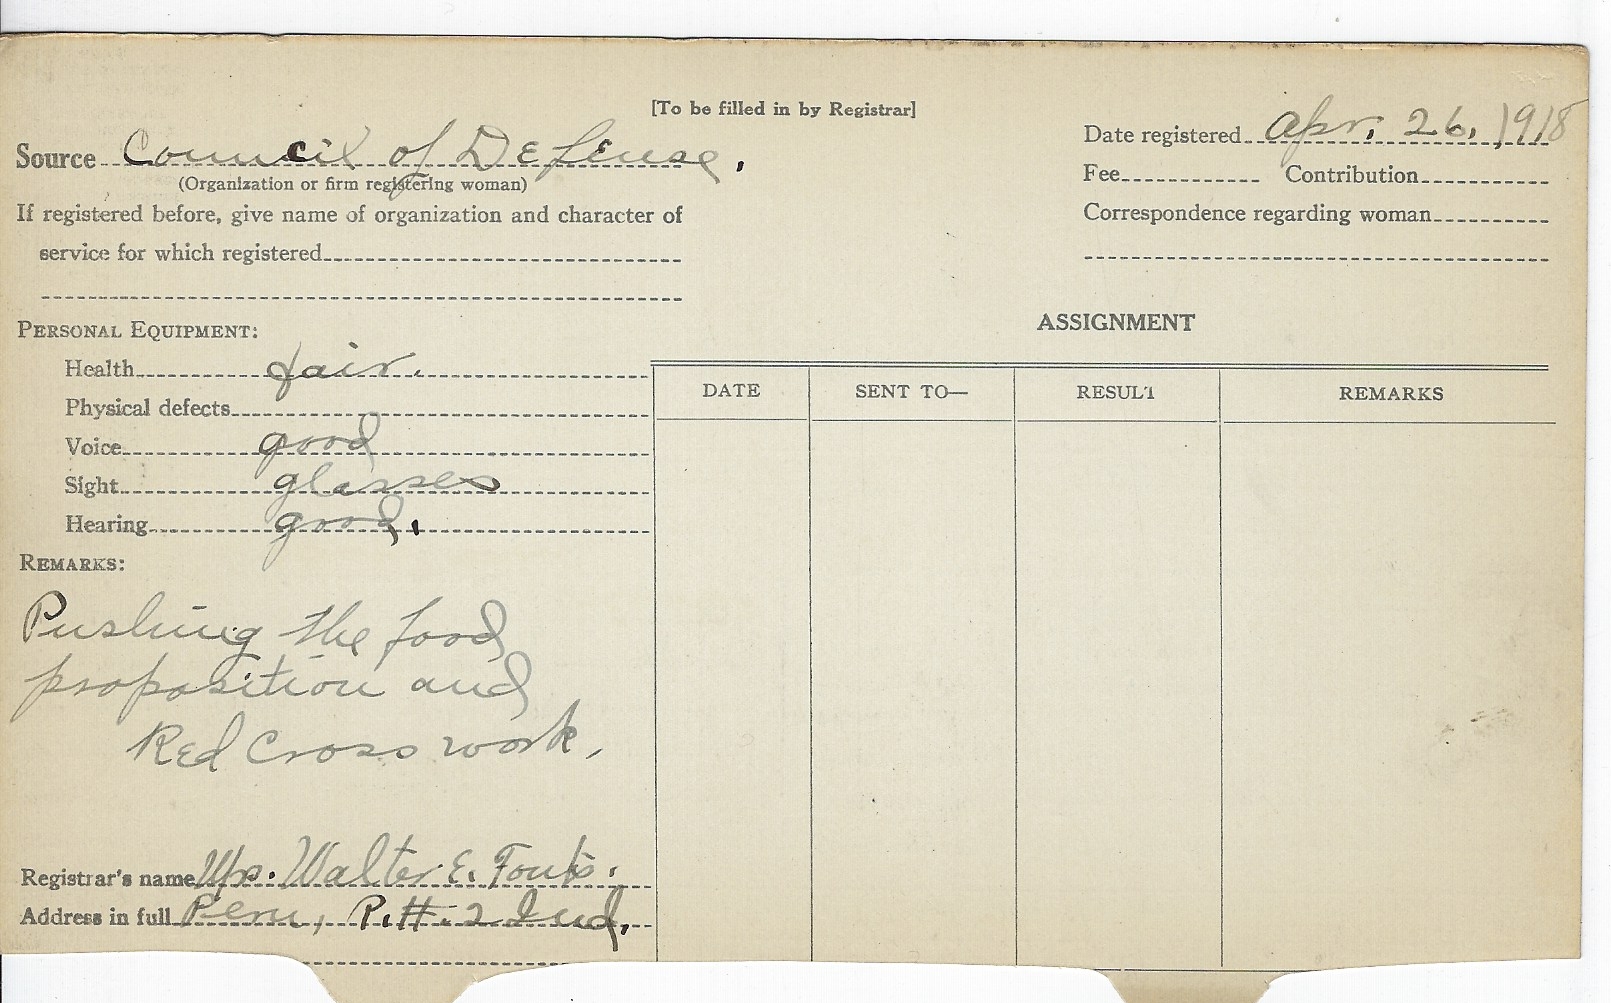 [To be filled in by Registrar]
Source Council of Defense.
(Organization or firm registering woman)
If registered before, give name of organization and character of
service for which registered
Date registered Apr. 26, 1918
Fee Contribution
Correspondence regarding woman
PERSONAL EQUIPMENT:
Health fair.
Physical defects
Voice good
Sight glasses
Hearing good.
REMARKS:
Pushing the food
proposition and
Red Cross work,
Registrar's name Mrs. Walter E. Fouts.
Address in full Peru, R.#. 2 Ind.
ASSIGNMENT
DATE SENT TO— RESULT REMARKS